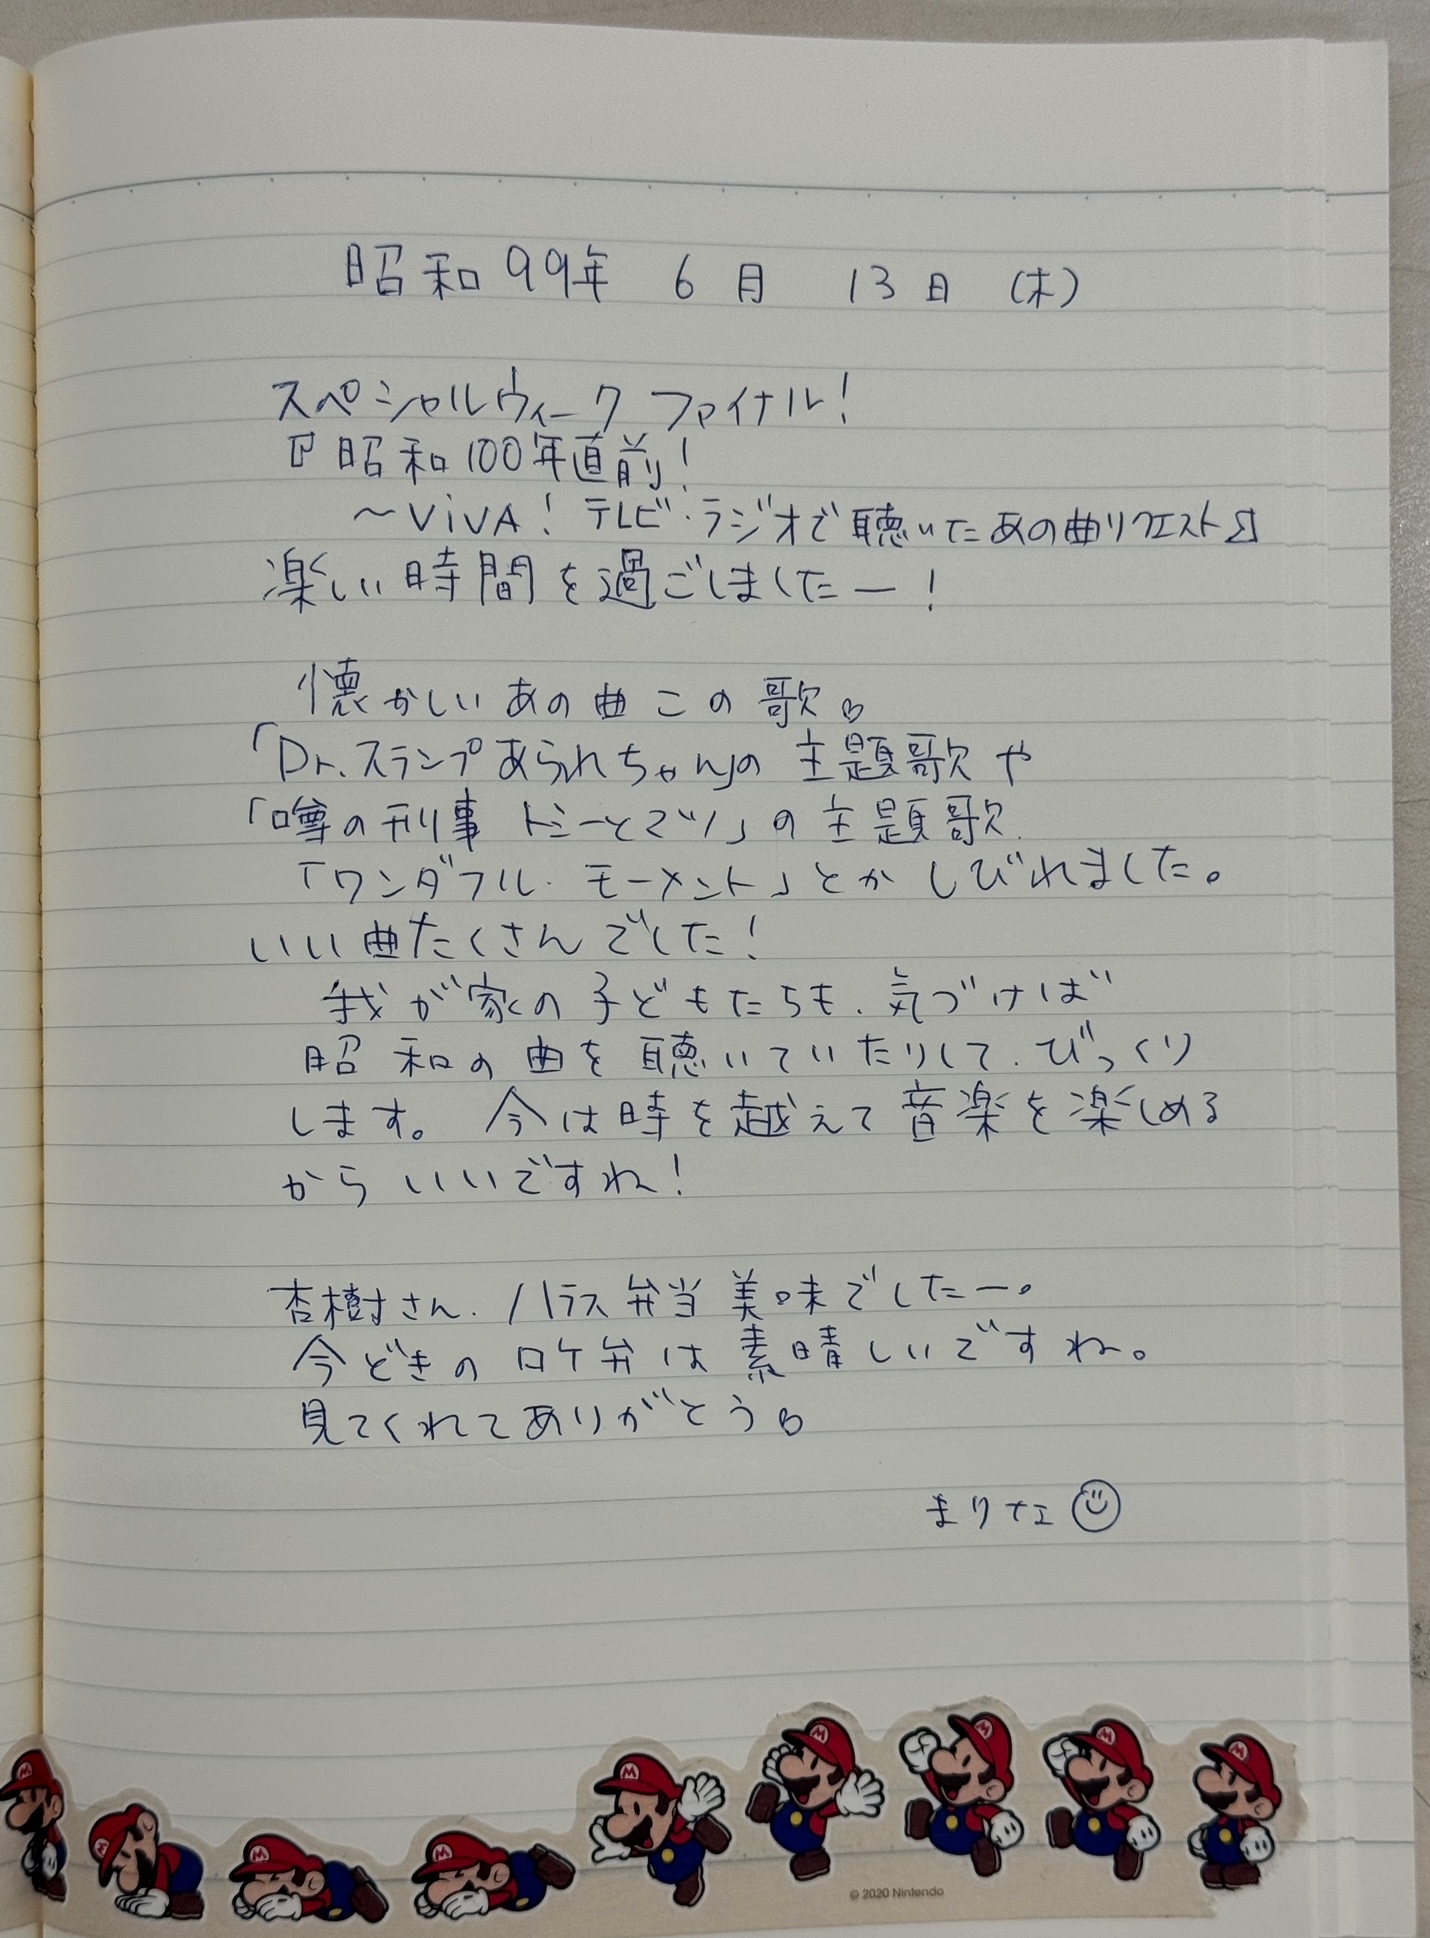 昭和99年 6月 13日 (木)
スペシャルウィーク ファイナル!
『昭和100年直前!
〜ViVA! テレビ・ラジオで聴いたあの曲リクエスト』
楽しい時間を過ごしましたー!
懐かしいあの曲この歌。
「Dr.スランプあられちゃん」の主題歌や
「噂の刑事 トミーとマツ」の主題歌
「ワンダフル・モーメント」とかしびれました。
いい曲たくさんでした!
我が家の子どもたちも、気づけば
昭和の曲を聴いていたりして、びっくり
します。今は時を越えて音楽を楽しめる
からいいですね!
杏樹さん、ハラス弁当美味でしたー。
今どきのロケ弁は素晴しいですね。
見てくれてありがとう。
まりなェ
© 2020 Nintendo